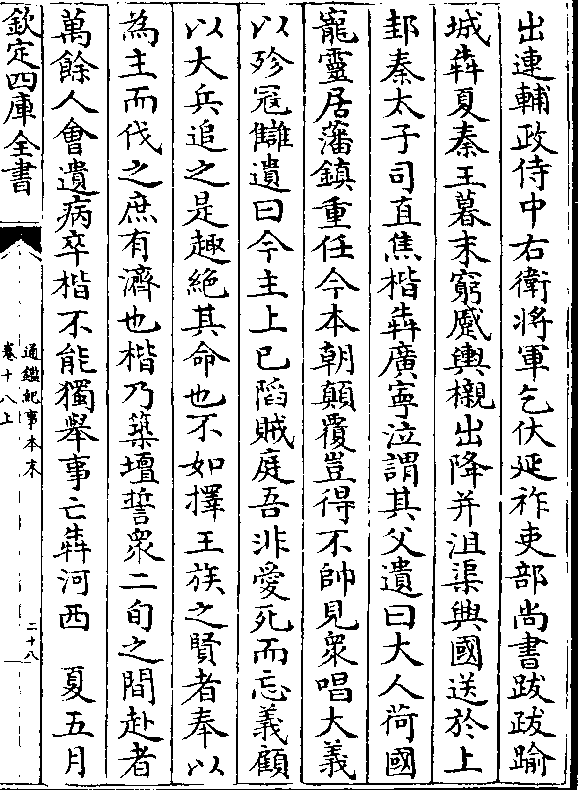 出連輔政侍中右衛將軍乞伏延祚吏部尚書跋跋踰
城犇夏秦王暮末窮蹙輿櫬出降并沮渠興國送於上
邽秦太子司直焦楷犇廣寧泣謂其父遺曰大人荷國
寵靈居藩鎮重任今本朝顛覆豈得不帥見衆唱大義
以殄冦讎遺曰今主上已䧟賊庭吾非愛死而忘義顧
以大兵追之是趣絶其命也不如擇王族之賢者奉以
為主而伐之庶有濟也楷乃築壇誓衆二旬之間赴者
萬餘人會遺病卒楷不能獨舉事亡犇河西　夏五月
欽定四庫全書
通鑑紀事本末
卷十八上
二十八